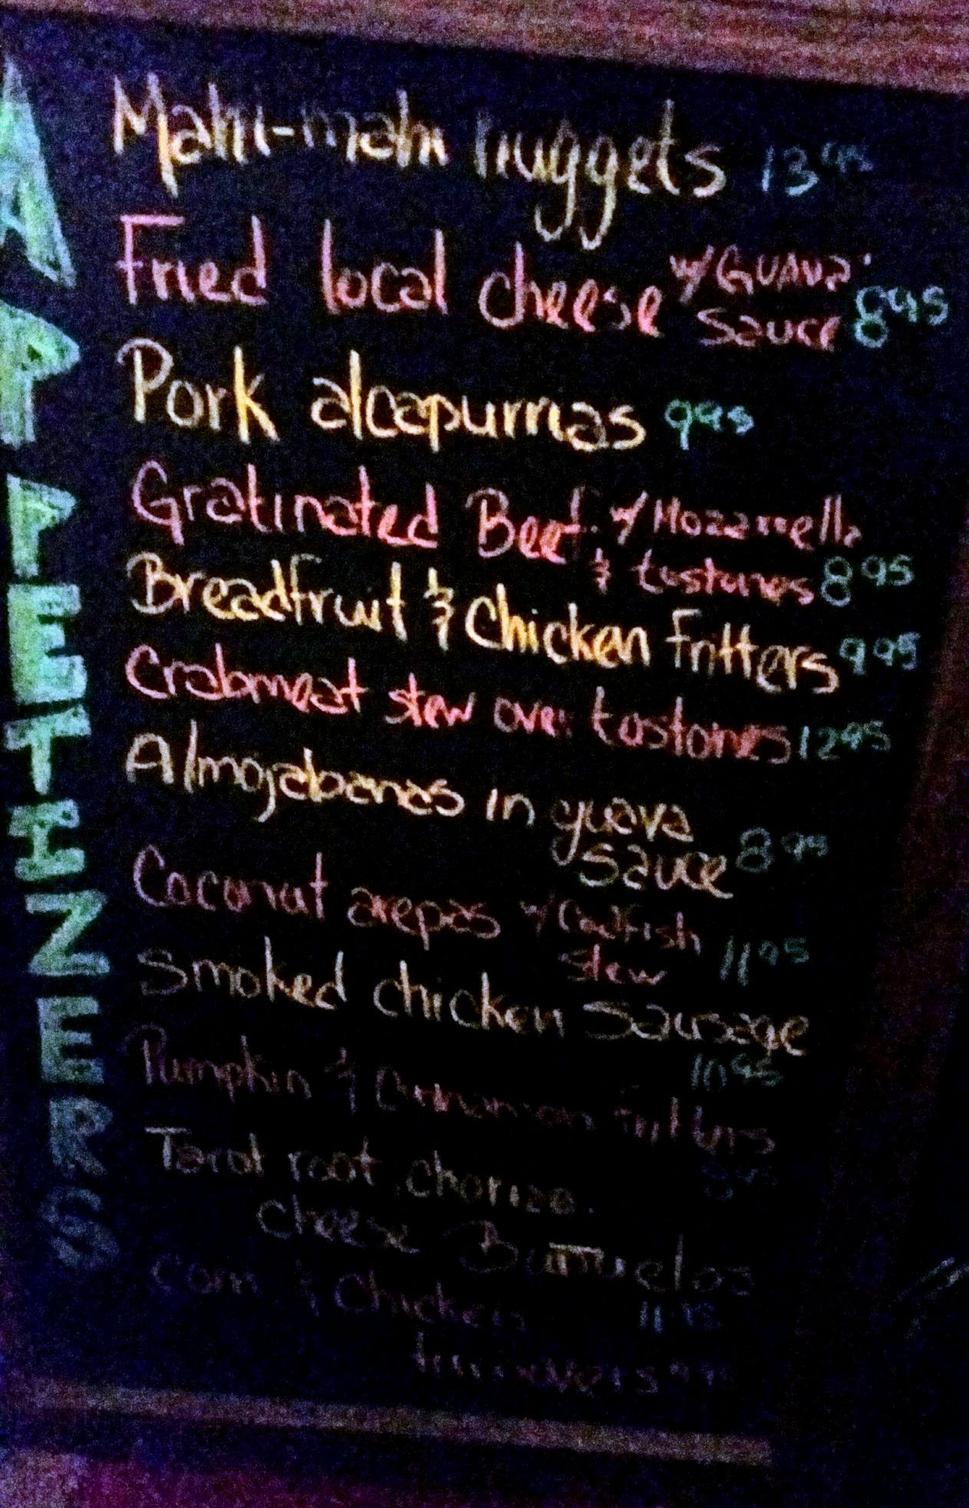 APPETIZERS
Mahi-mahi nuggets 13 95
Fried local cheese w/ GUAVA
sauce 8 95
Pork alcapurrias 9 95
Gratinated Beef w/ Mozarella
& tostones 8 95
Breadfruit & Chicken fritters 9 95
Crabmeat stew over tostones 12 95
Almojabanas in guava
sauce 8 95
Coconut arepas w/ Codfish
stew 11 95
Smoked chicken sausage
10 95
Pumpkin & Cinnamon
Tarot root chorizo
cheese Buñuelos
corn & Chicken 11 95